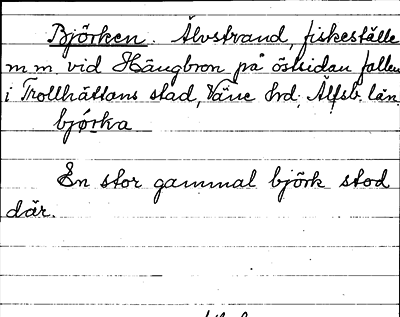 Björken. Älvstrand, fiskeställe
m.m. vid Hängbron på östsidan fallen
i Trollhättans stad, Väne hrd, Älfsb. län.
björka
En stor gammal björk stod
där.